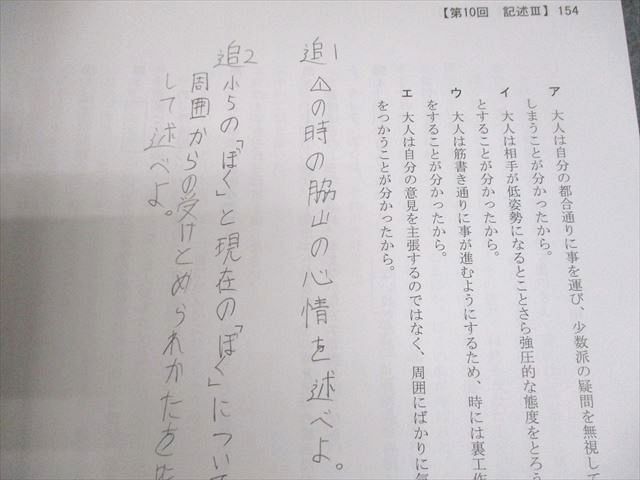 【第10回 記述Ⅲ】154
ア 大人は自分の都合通りに事を運び、少数派の疑問を無視して
しまうことが分かったから。
イ 大人は相手が低姿勢になるとことさら強圧的な態度をとろう
とすることが分かったから。
ウ 大人は筋書き通りに事が進むようにするため、時には裏工作
をすることが分かったから。
エ 大人は自分の意見を主張するのではなく、周囲にばかりに気
をつかうことが分かったから。
追1 △の時の脇山の心情を述べよ。
追2 小5の「ぼく」と現在の「ぼく」について
周囲からの受けとめられかたを
して述べよ。